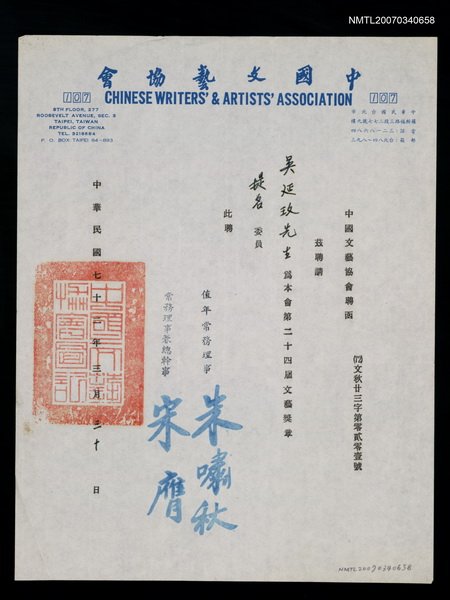 NMTL20070340658
中國文藝協會
107 CHINESE WRITERS' & ARTISTS' ASSOCIATION 107
8TH FLOOR, 277
ROOSEVELT AVENUE, SEC. 3
TAIPEI, TAIWAN
REPUBLIC OF CHINA
P. O. BOX TAIPEI 84-893
中華民國台北市
中國文藝協會聘函
(73)文秋廿三字第零貳零壹號
茲聘請
吳延玫先生為本會第二十四屆文藝獎章
提名委員
此聘
值年常務理事 朱嘯秋
常務理事兼總幹事 宋膺
中華民國七十三年三月二十日
NMTL20070340658